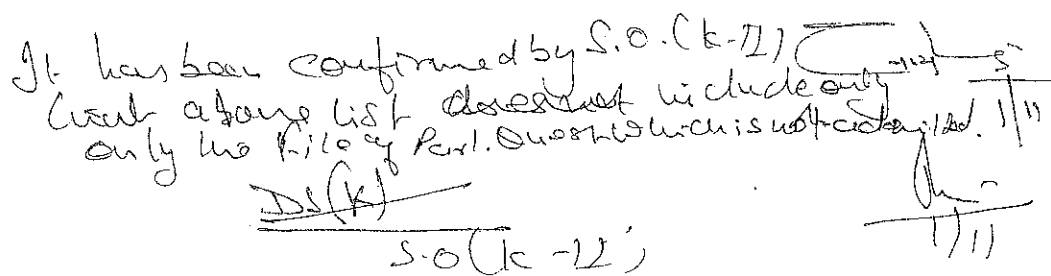 It has been confirmed by S.O. (K-II)
that above list does not include only
only the file of Parl. Quest. which is not
1/11
DS(K)
1/11
S.O (K-II)